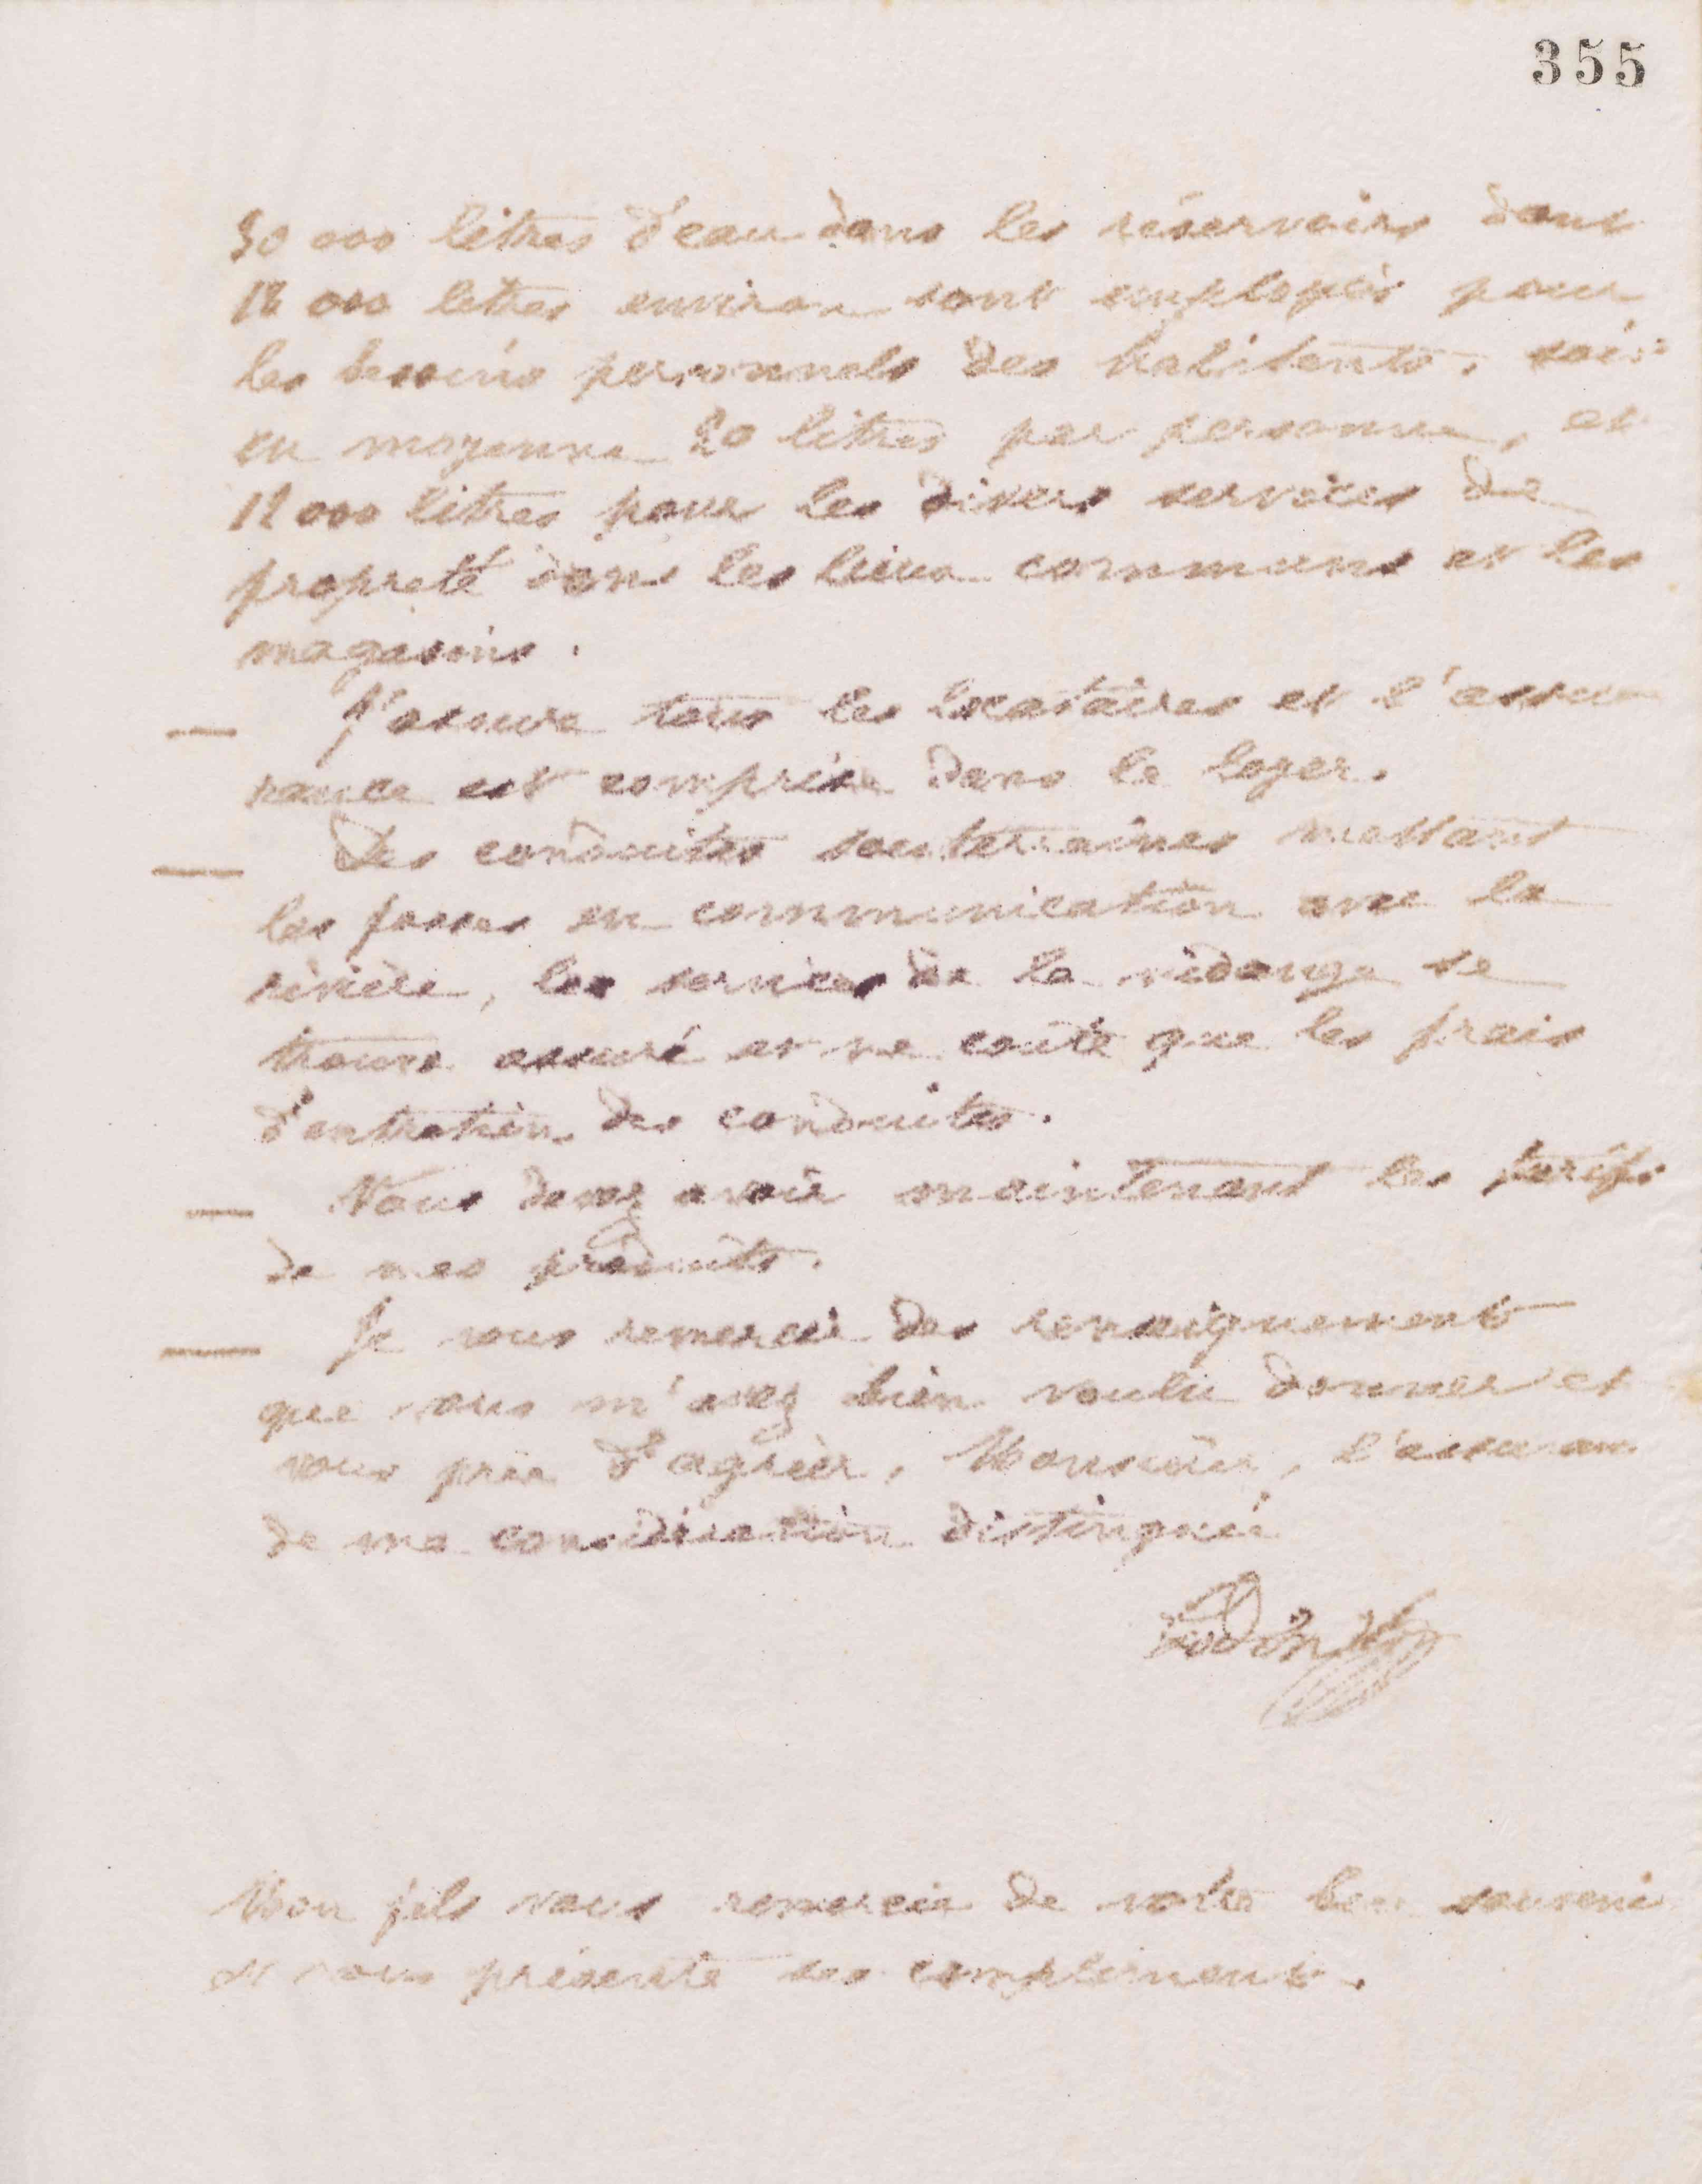 355
30 000 litres d'eau dans les réservoirs dont
18 000 litres environ sont employés pour
les besoins personnels des habitants, soit
en moyenne 20 litres par personne, et
12 000 litres pour les divers services de
propreté dans les lieux communs et les
magasins.
— J'assure tous les locataires et l'assu
rance est comprise dans le loyer.
— Des conduites souterraines mettant
les fosses en communication avec la
rivière, les services de la vidange se
trouve assuré et ne coûte que les frais
d'entretien des conduites.
— Vous devez avoir maintenant les tarifs
de mes produits.
— Je vous remercie des renseignements
que vous m'avez bien voulu donner et
vous prie d'agréer, Monsieur, l'assurance
de ma considération distinguée
Godin
Mon fils vous remercie de votre bon souvenir
et vous présente ses compliments.